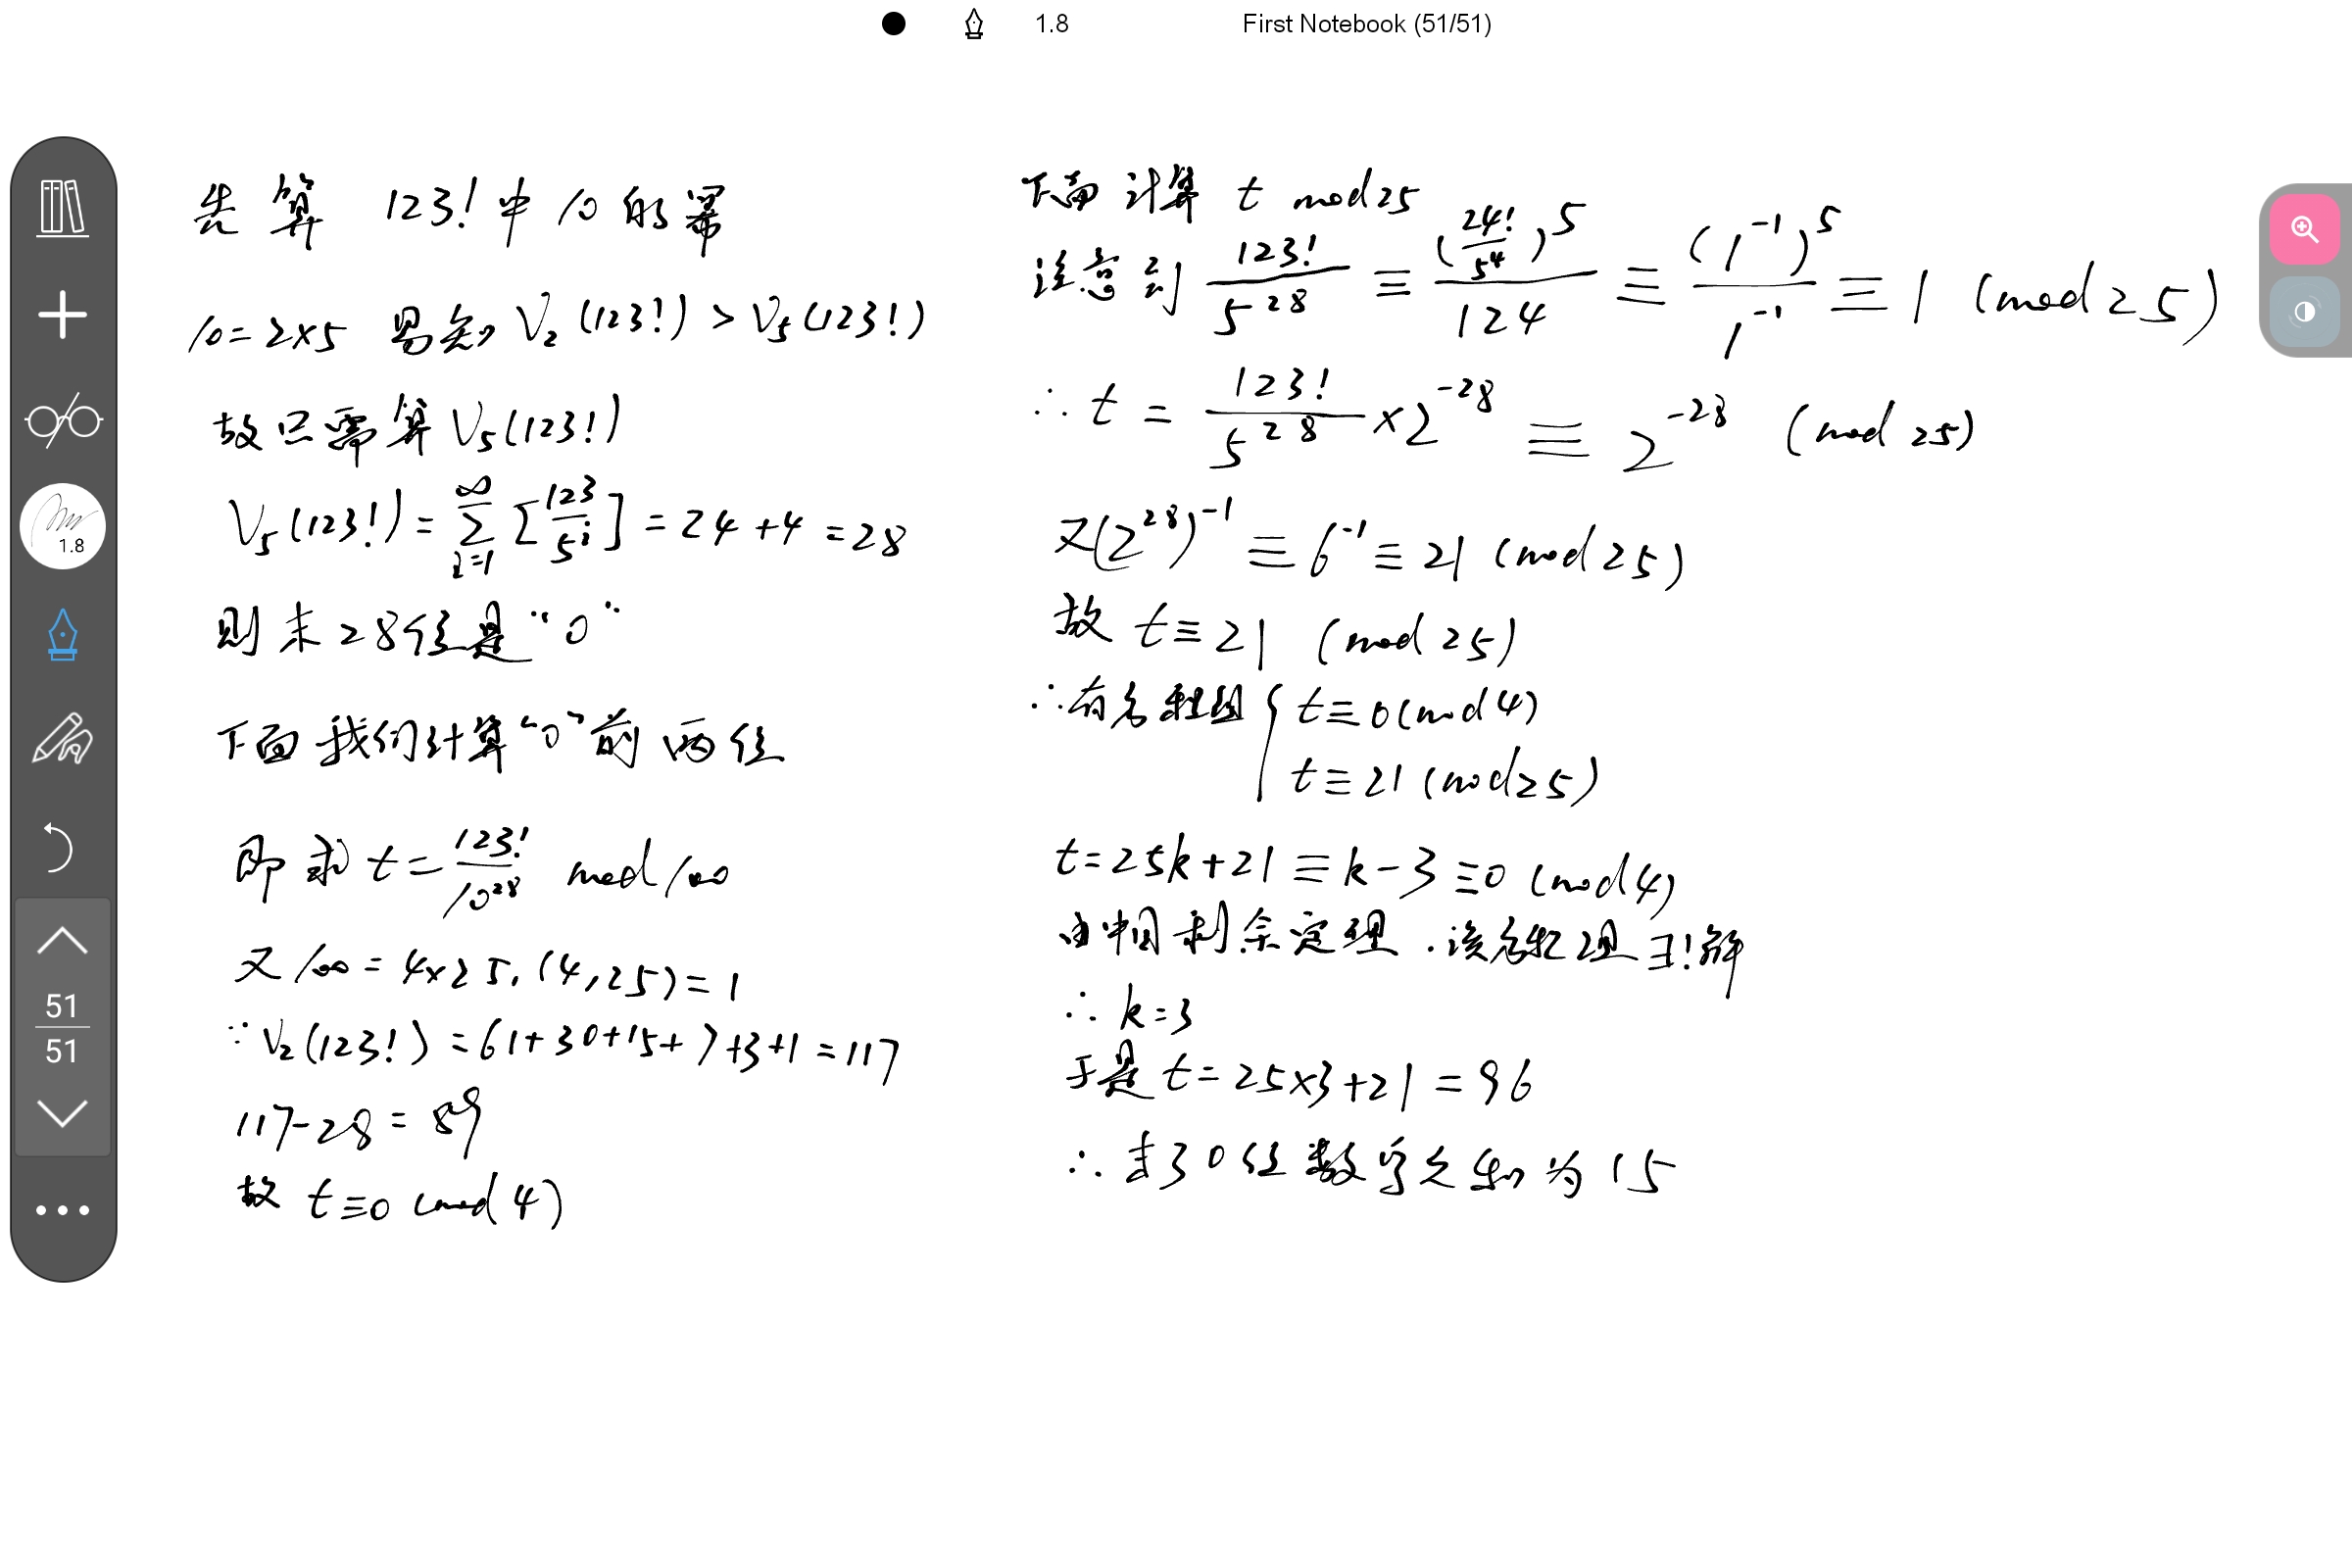 1.8 First Notebook (51/51)
1.8
51
51
先算 123! 中 10 的幂
10=2×5 易知 V₂(123!) > V₅(123!)
故只需算 V₅(123!)
V₅(123!) = ∑_{i=1}^{∞} [123/5^i] = 24+4 = 28
则末28位是“0”
下面我们计算“0”前两位
即求 t = 123!/10^28 mod 100
又 100 = 4×25, (4,25)=1
∵ V₂(123!) = 61+30+15+7+3+1 = 117
117-28 = 89
故 t≡0 (mod 4)
下面计算 t mod 25
注意到 123!/5^28 ≡ (24!/5^4)^5/124 ≡ (1^-1)^5/1^-1 ≡ 1 (mod 25)
∴ t = 123!/5^28 × 2^-28 ≡ 2^-28 (mod 25)
又(2^28)^-1 ≡ 6^-1 ≡ 21 (mod 25)
故 t≡21 (mod 25)
∴有方程组 { t≡0 (mod 4)
t≡21 (mod 25)
t=25k+21 ≡ k-3 ≡0 (mod 4)
由中国剩余定理,该方程组∃!解
∴ k=3
于是 t = 25×3+21 = 96
∴末30位数字之和为15